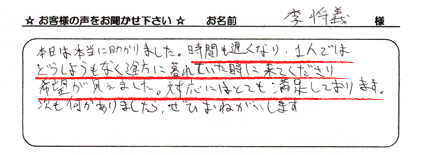 ☆ お客様の声をお聞かせ下さい ☆ お名前 李将義 様
本日は本当に助かりました。時間も遅くなり、1人では
どうしようもなく途方に暮れていた時に来てくださり
希望が見えました。対応にはとても満足しております。
次も何かありましたら、ぜひおねがいします